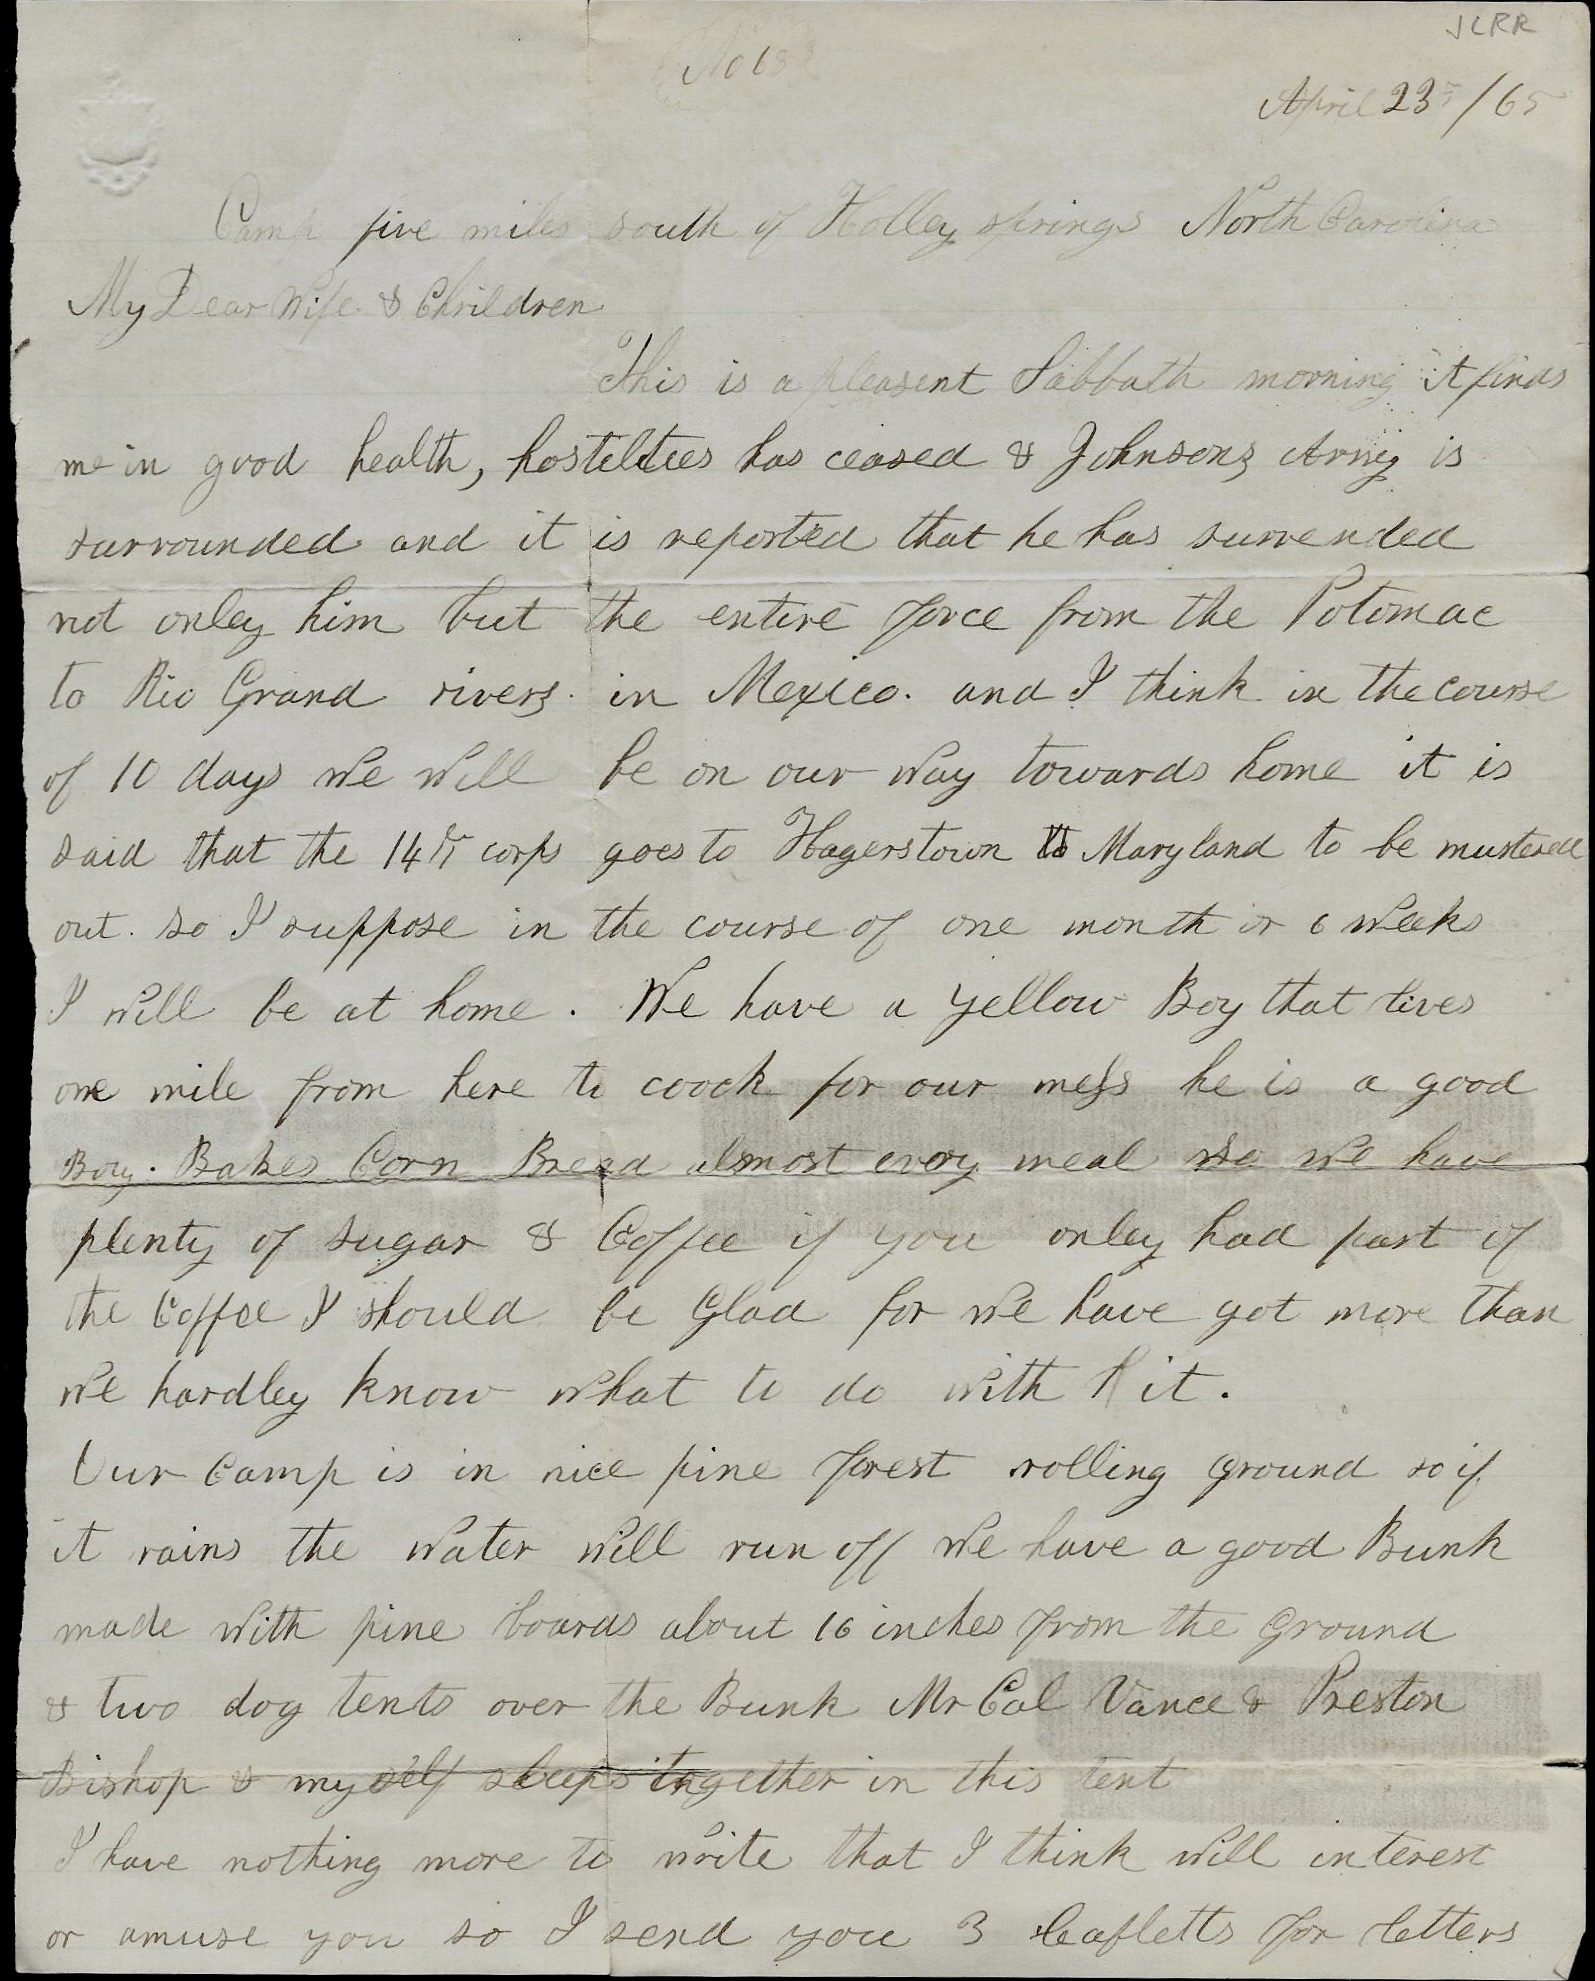 JLRR
No 68
April 23 /65
Camp five miles south of Holley springs North Carolina
My Dear Wife & Chrildren
This is a pleasent Sabbath morning it finds
me in good health, hostelities has ceased & Johnsons Army is
surrounded and it is reported that he has surrended
not onley him but the entire force from the Potomac
to Rio Grand rivers. in Mexico. and I think in the course
of 10 days We Will be on our Way towards home it is
said that the 14th corps goes to Hagerstown Maryland to be mustered
out. so I suppose in the course of one month or 6 Weeks
I Will be at home. We have a yellow Boy that lives
one mile from here to coock for our mess he is a good
Boy. Bakes Corn Bread almost every meal We have
plenty of sugar & Coffee if you onley had part of
the Coffee I should be Glad for We have got more than
We hardley know What to do With it.
Our Camp is in nice pine forest rolling ground so if
it rains the Water Will run off We have a good Bunk
made With pine boards about 16 inches from the ground
& two dog tents over the Bunk Mr Cal Vance & Preston
Bishop & my self sleeps together in this tent
I have nothing more to write that I think Will interest
or amuse you so I send you 3 leafletts for letters